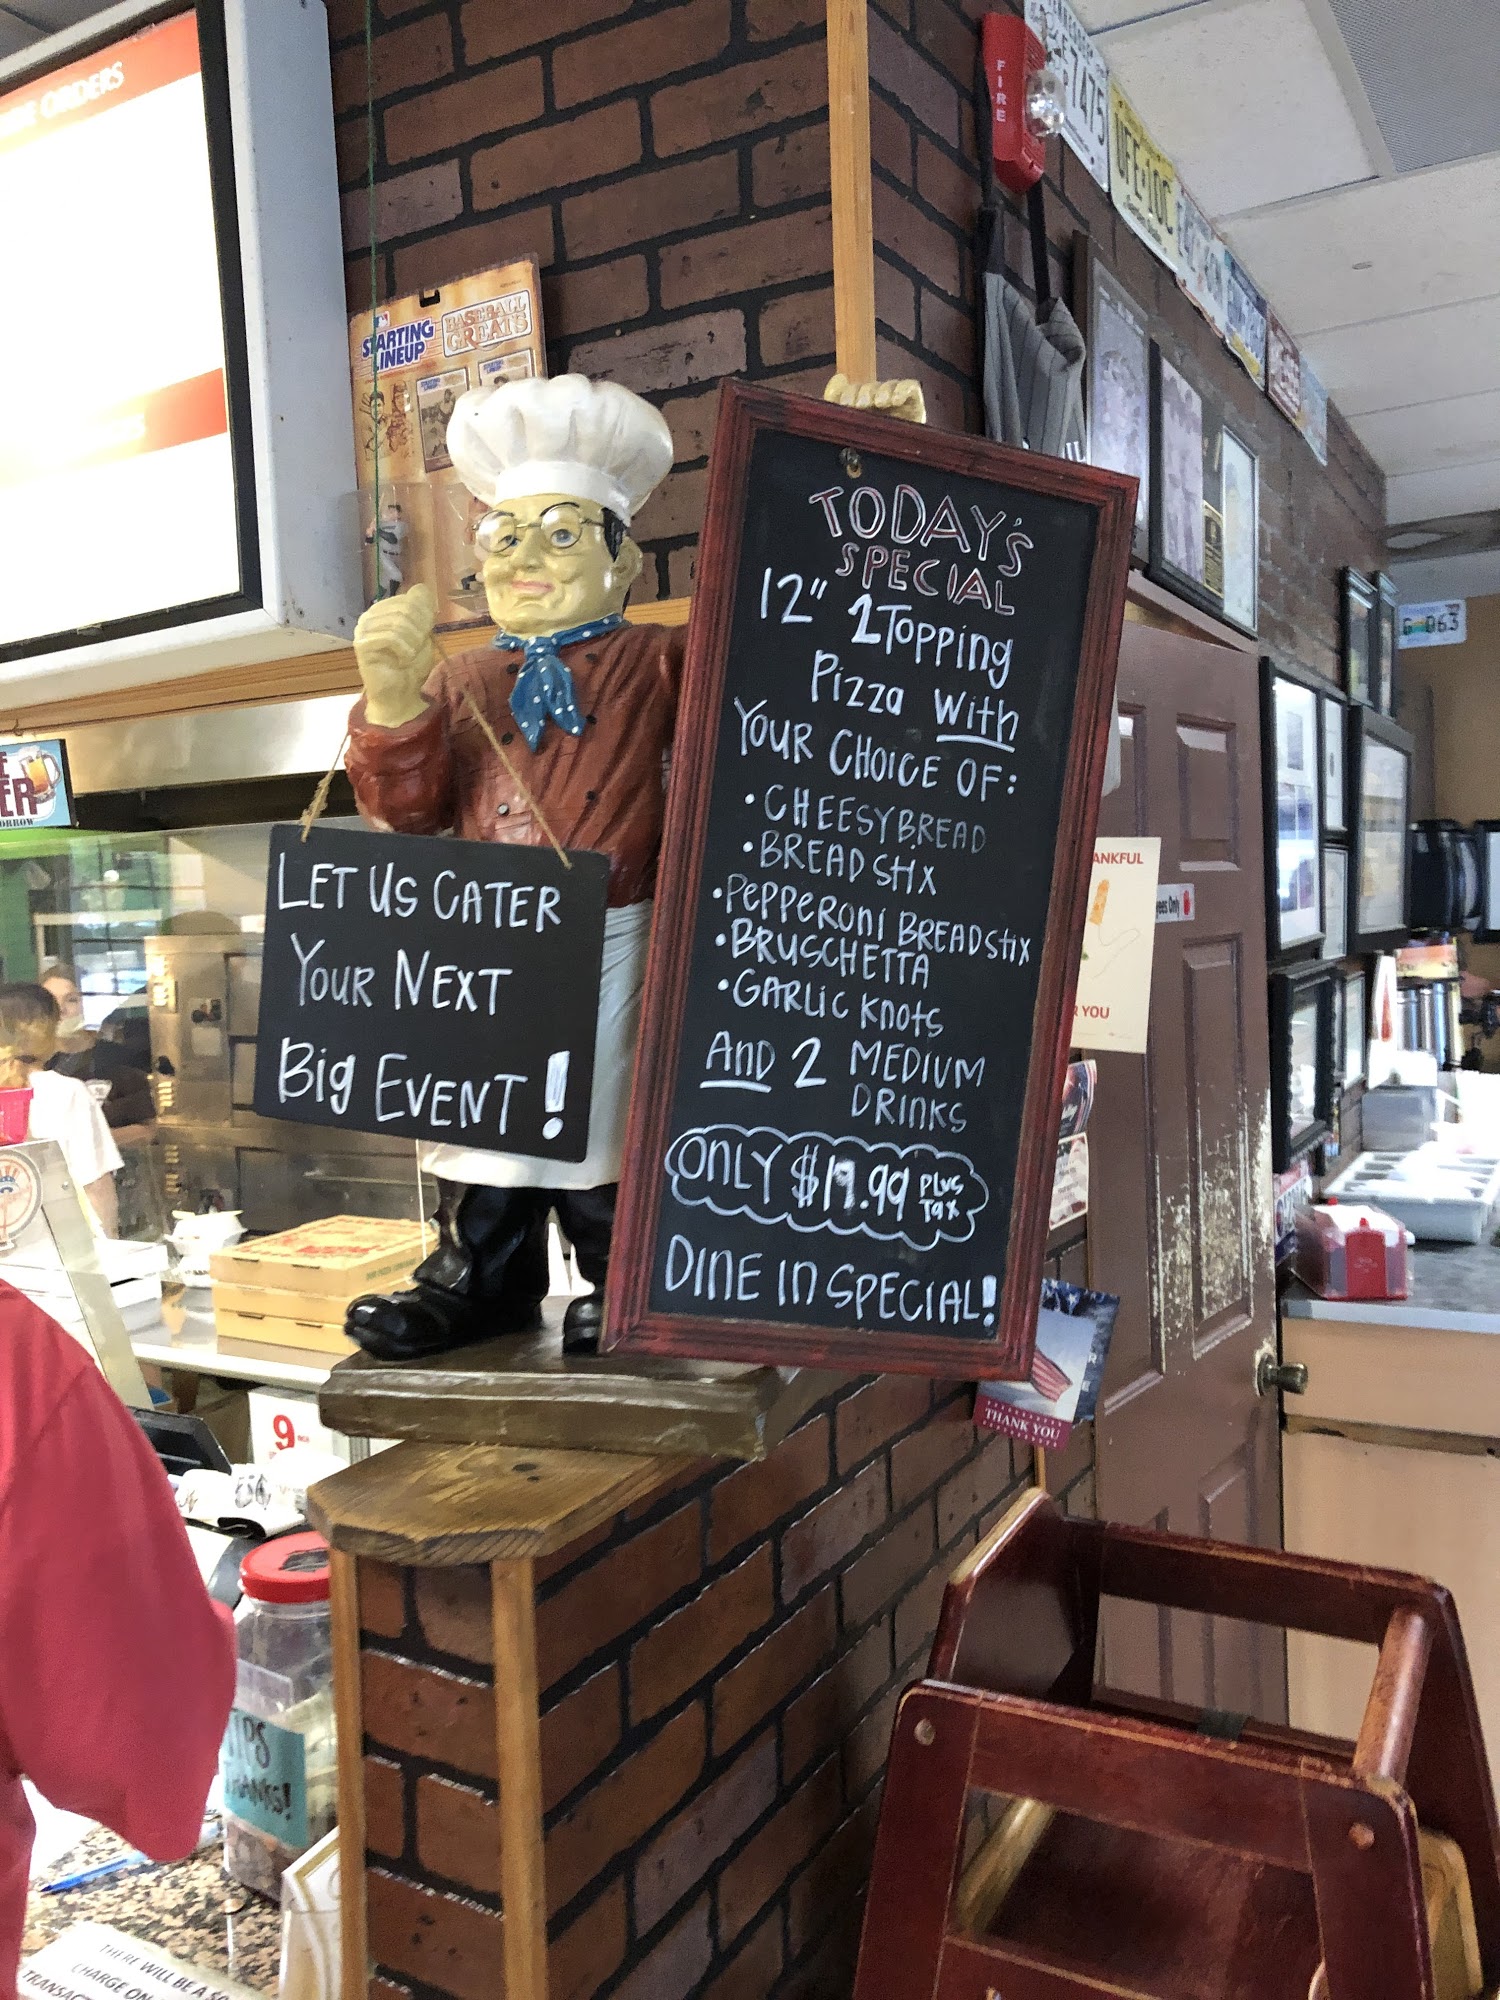 ORDERS
FIRE
7475
UFE·10C
STARTING
LINEUP
BASEBALL
GREATS
TODAY'S
SPECIAL
12" 2 Topping
Pizza With
YOUR CHOICE OF:
• CHEESYBREAD
• BREADSTIX
• PEPPERONI BREADSTIX
• BRUSCHETTA
• GARLIC KNOTS
AND 2 MEDIUM
DRINKS
ONLY $19.99 PLUS
TAX
DINE IN SPECIAL!
LET US CATER
YOUR NEXT
BIG EVENT!
ANKFUL
Only
R YOU
THANK YOU
9
TIPS
THANKS!
THERE WILL BE A
CHARGE ON
TRANSAC